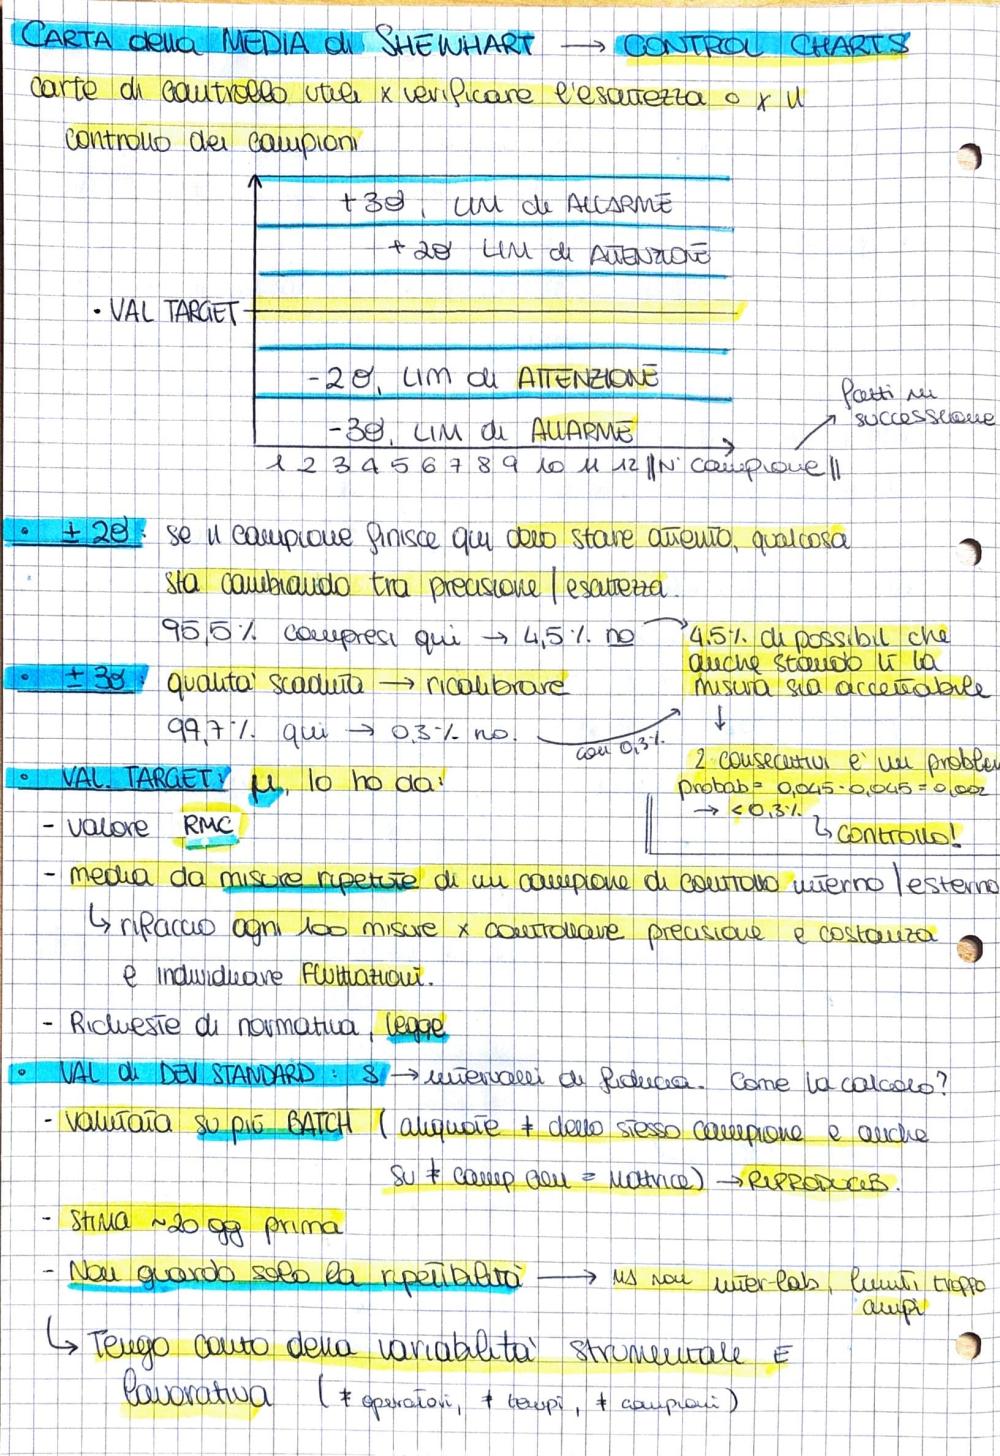 CARTA della MEDIA di SHEWHART → CONTROL CHARTS
carte di controllo utili x verificare l'esattezza o x il
controllo dei campioni
+3σ, LIM di ALLARME
+2σ LIM di ATTENZIONE
• VAL TARGET
-2σ, LIM di ATTENZIONE
-3σ, LIM di ALLARME
fatti in
successione
1 2 3 4 5 6 7 8 9 10 11 12 || N° campione ||
• ±2σ: se il campione finisce qui devo stare attento, qualcosa
sta cambiando tra precisione / esattezza.
95,5% compresi qui → 4,5% no
4.5% di possibil che
anche stando lì la
misura sia accettabile
• ±3σ: qualità scaduta → ricalibrare
99,7% qui → 0,3% no.
con 0,3%
↓
2 consecutivi è un problem
probab = 0,045 · 0,045 = 0,002
→ < 0,3%
↳ CONTROLLO!
• VAL. TARGET: μ, lo ho da:
- valore RMC
- media da misure ripetute di un campione di controllo interno / esterno
↳ rifaccio ogni 100 misure x controllare precisione e costanza
e individuare FLUTTAZIONI.
- Richieste di normativa, legge
• VAL di DEV STANDARD: s → intervalli di fiducia. Come la calcolo?
- Valutata su più BATCH (aliquote ≠ dello stesso campione e anche
su ≠ camp con = matrice) → RIPRODUCIB.
- STIMA ~20 gg prima
- Non guardo solo la ripetibilità → ms non inter-lab, limiti troppo
ampi
↳ Tengo conto della variabilità strumentale E
lavorativa (≠ operatori, ≠ tempi, ≠ campioni)